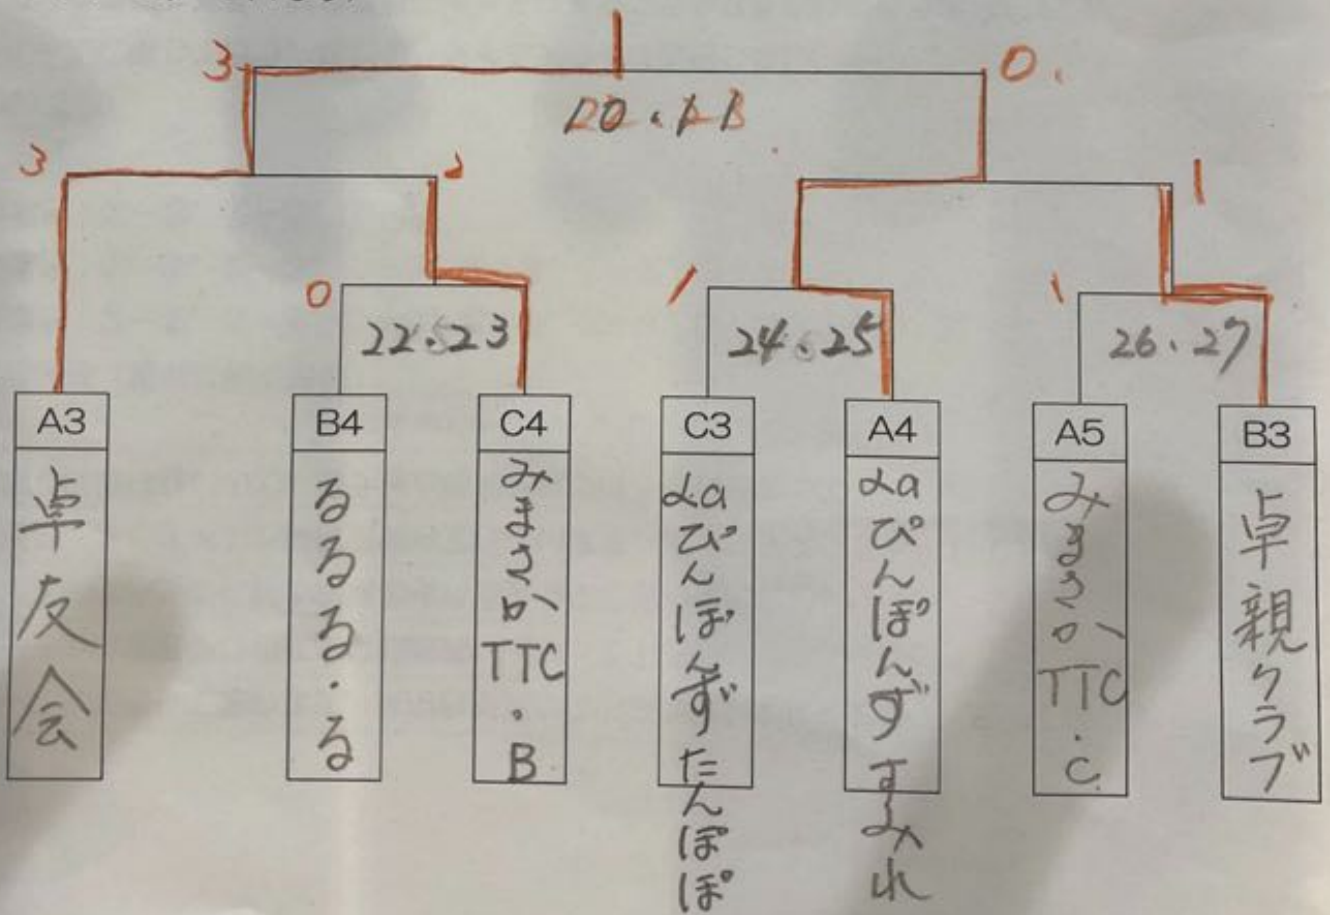 3
0.
3
2
1
0
22.23
1
24.25
1
26.27
A3
卓友会
B4
るるる・る
C4
みまさかTTC・B
C3
αaぴんぽんずたんぽぽ
A4
αaぴんぽんずすみれ
A5
みまさかTTC・C
B3
卓親クラブ